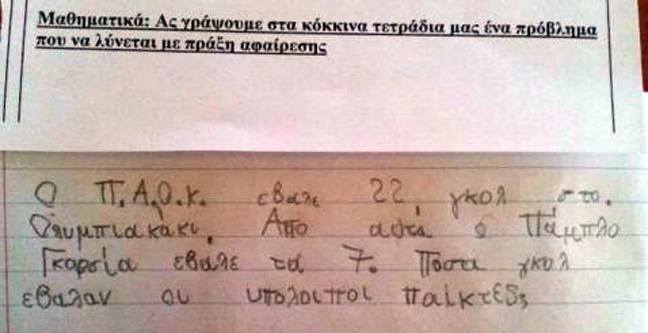 Μαθηματικά: Ας γράψουμε στα κόκκινα τετράδια μας ένα πρόβλημα
που να λύνεται με πράξη αφαίρεσης
Ο Π.Α.Ο.Κ. εβαλε 22 γκολ στο.
Ολυμπιακάκι. Απο αυτά ο Πάμπλο
Γκαρσία εβαλε τα 7. Ποσα γκολ
εβαλαν οι υπολοιποι παίκτες;